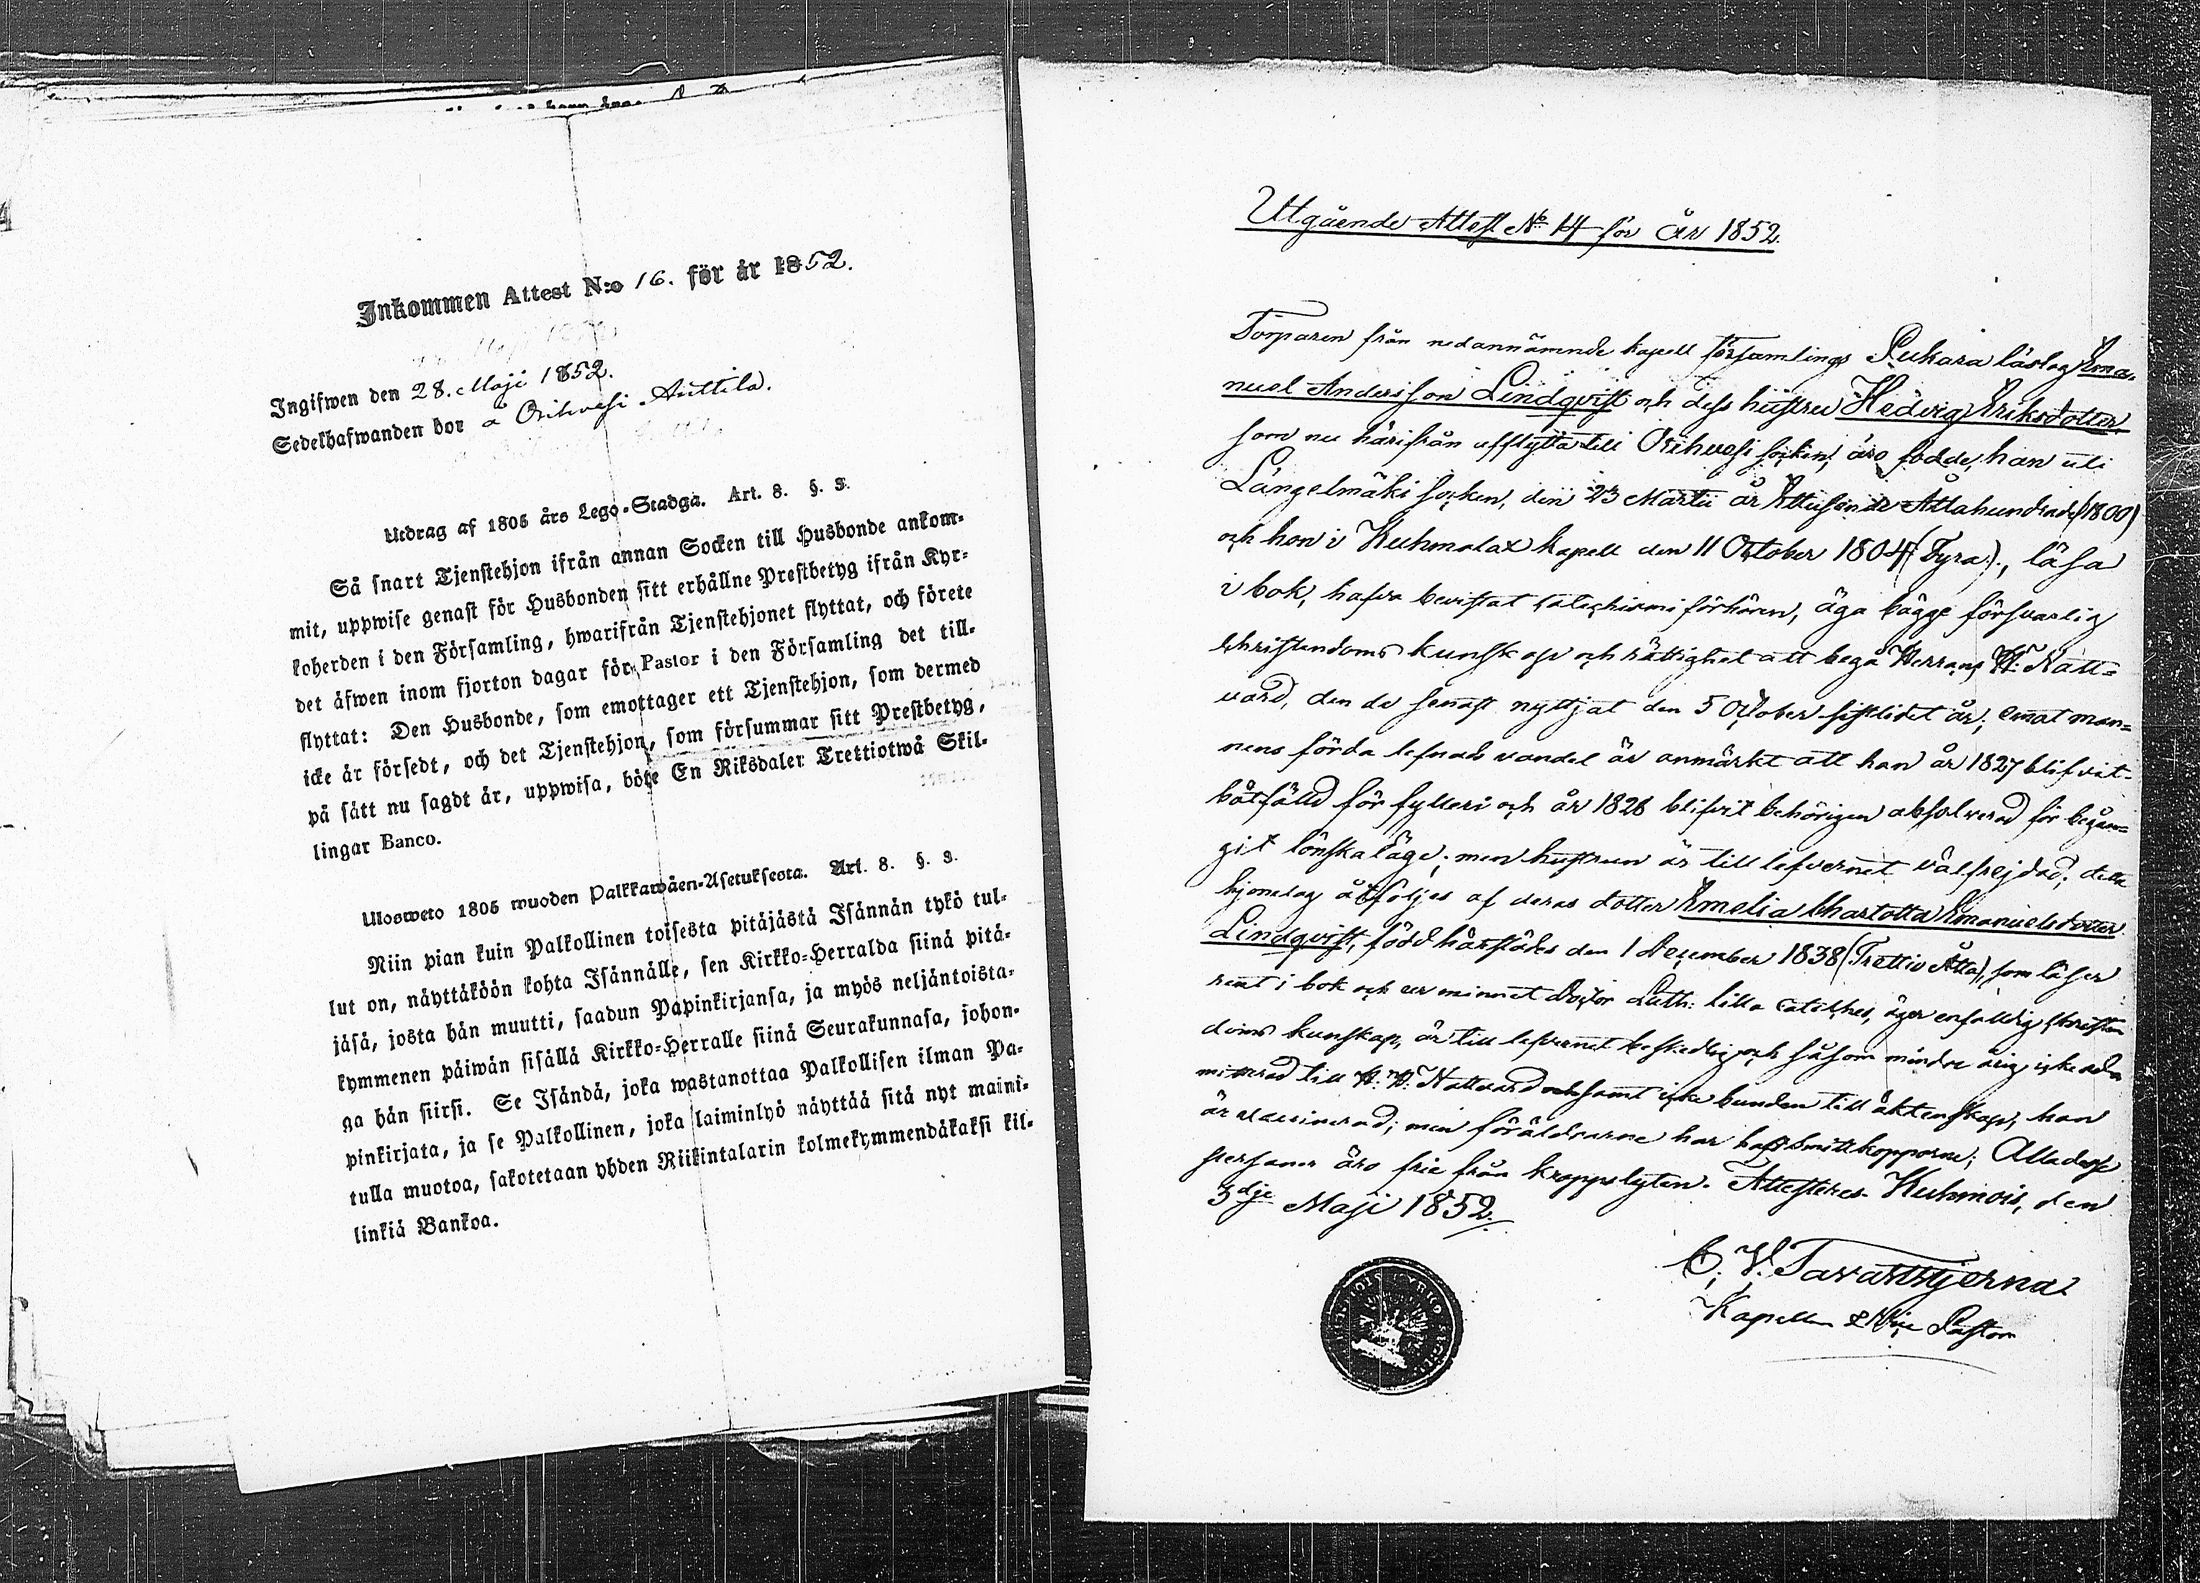 Inkommen Attest N:o 16. för år 1852.
Ingifwen den 28. Maji 1852.
Sedelhafwanden bor å Orihvesi Anttila.
Utdrag af 1805 års Lego-Stadga. Art. 8. §. 3.
Så snart Tjenstehjon ifrån annan Socken till Husbonde ankom-
mit, uppwise genast för Husbonden sitt erhållne Prestbetyg ifrån Kyr-
koherden i den Församling, hwarifrån Tjenstehjonet flyttat, och förete
det äfwen inom fjorton dagar för Pastor i den Församling det till-
flyttat: Den Husbonde, som emottager ett Tjenstehjon, som dermed
icke är försedt, och det Tjenstehjon, som försummar sitt Prestbetyg,
på sätt nu sagdt är, uppwisa, böte En Riksdaler Trettiotwå Skil-
lingar Banco.
Ulosweto 1805 wuoden Palkkawäen-Asetuksesta. Art. 8. §. 3.
Niin pian kuin Palkollinen toisesta pitäjästä Isännän tykö tul-
lut on, näyttäköön kohta Isännälle, sen Kirkko-Herralda siinä pitä-
jäsä, josta hän muutti, saadun Papinkirjansa, ja myös neljäntoista-
kymmenen päiwän sisällä Kirkko-Herralle siinä Seurakunnasa, johon-
ga hän siirsi. Se Isändä, joka wastanottaa Palkollisen ilman Pa-
pinkirjata, ja se Palkollinen, joka laiminlyö näyttää sitä nyt maini-
tulla muotoa, sakotetaan yhden Riikintalarin kolmekymmendäkaksi kil-
linkiä Bankoa.
Utgående Attest No 14 för år 1852.
Torparen från nedannämnde kapell församlings Pukara läslag Ema-
nuel Andersson Lindqvist och dess hustru Hedvig Eriksdotter
som nu härifrån afflytta till Orihvesi socken, äro födde, han uti
Längelmäki socken, den 23 Martii år Ettusende Åttahundrade (1800)
och hon i Kuhmalax kapell den 11 October 1804 (Fyra)., läsa
i bok, hafva bevistat catechismi förhören, äga bägge försvarlig
Christendoms kunskap och rättighet att begå Herrans H. Natt-
vard, den de senast nyttjat den 5 October sistlidet år; emot man-
nens förda lefnads vandel är anmärkt att han år 1827 blifvit
bötfälld för fylleri och år 1828 blifvit behörigen absolverad för begån-
git lönskaläge; men hustrun är till lefvernet välfrejdad; detta
hjonelag åtföljes af deras dotter Emelia Charlotta Emanuelsdotter
Lindqvist, född härstädes den 1 December 1838 (Trettio Åtta), som läser
rent i bok och ur minnet Doctor Luth: lilla cateches, äger enfaldig Christen
doms kunskap, är till lefvernet beskedlig och såsom minder årig icke ad
mitterad till H. H. Nattvard samt icke bunden till äktenskap, hon
är vaccinerad; men föräldrarne har haft Smittkopporne; Alla desse
personer äro frie från kroppslyten. Attesteres Kuhmois, den
3dje Maji 1852.
C. V. Tavaststjerna
Kapellan & Vice Pastor